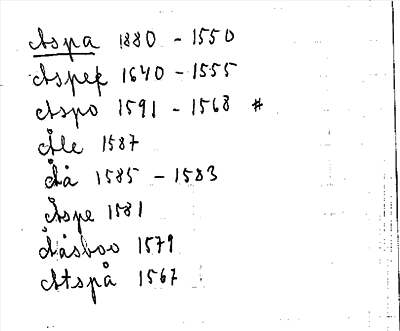 Aspa 1880 - 1550
Aspek 1640 - 1555
Aspo 1591 - 1568 #
Åle 1587
Åå 1585 - 1583
Åspe 1581
Ååsboo 1579
Atspå 1567